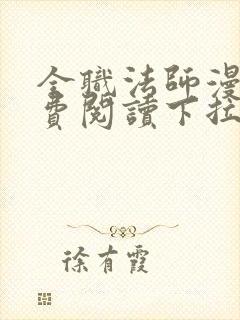 全職法師漫
費閱讀下拉
徐有霞